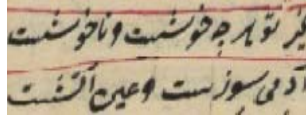 غیر تو هر چه خوشست و ناخوشست
آدمی سوزست و عین آتشست